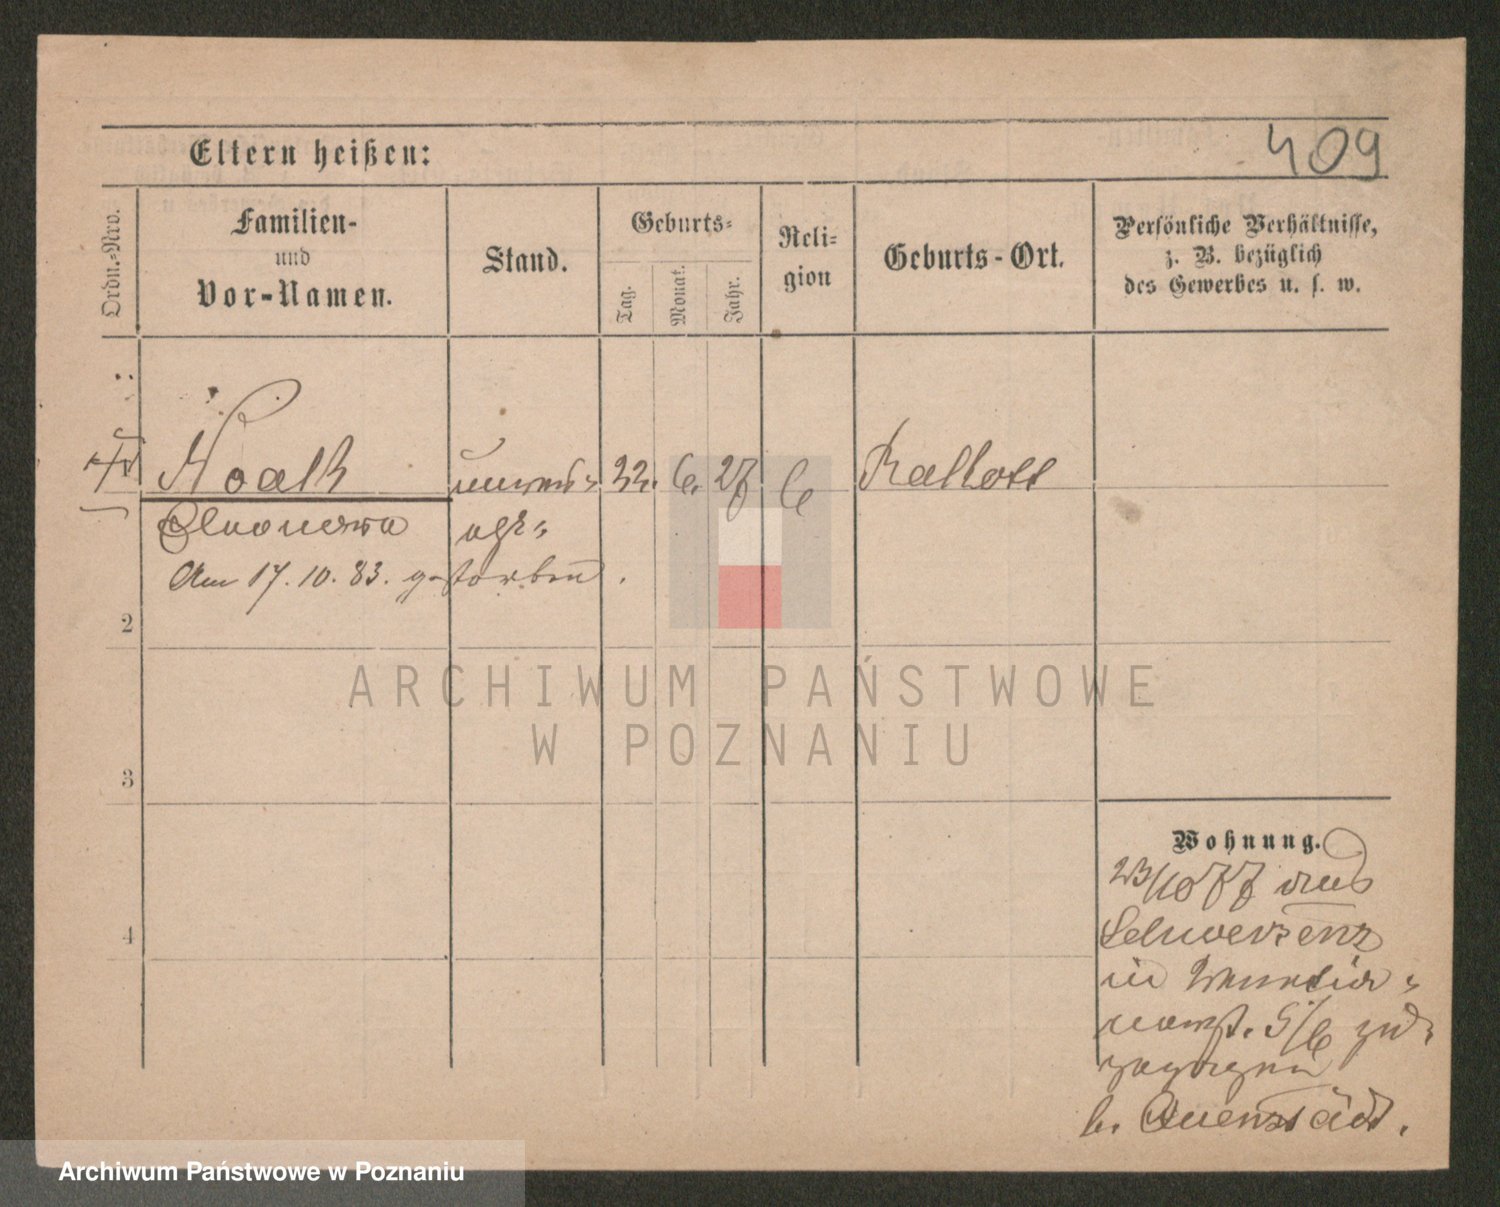 409
Eltern heißen:
Ordn.-Nro.
Familien-
und
Vor-Namen.
Stand.
Geburts-
Tag.
Monat.
Jahr.
Reli-
gion
Geburts-Ort.
Persönliche Verhältnisse,
z. B. bezüglich
des Gewerbes u. s. w.
Noak 22. 6. 27
Eleonora
Am 17. 10. 83. gestorben.
2
3
4
Wohnung.
23/10 77 aus
Schwersenz
in
5/6 zu-
gezogen
b.
ARCHIWUM PAŃSTWOWE
W POZNANIU
Archiwum Państwowe w Poznaniu